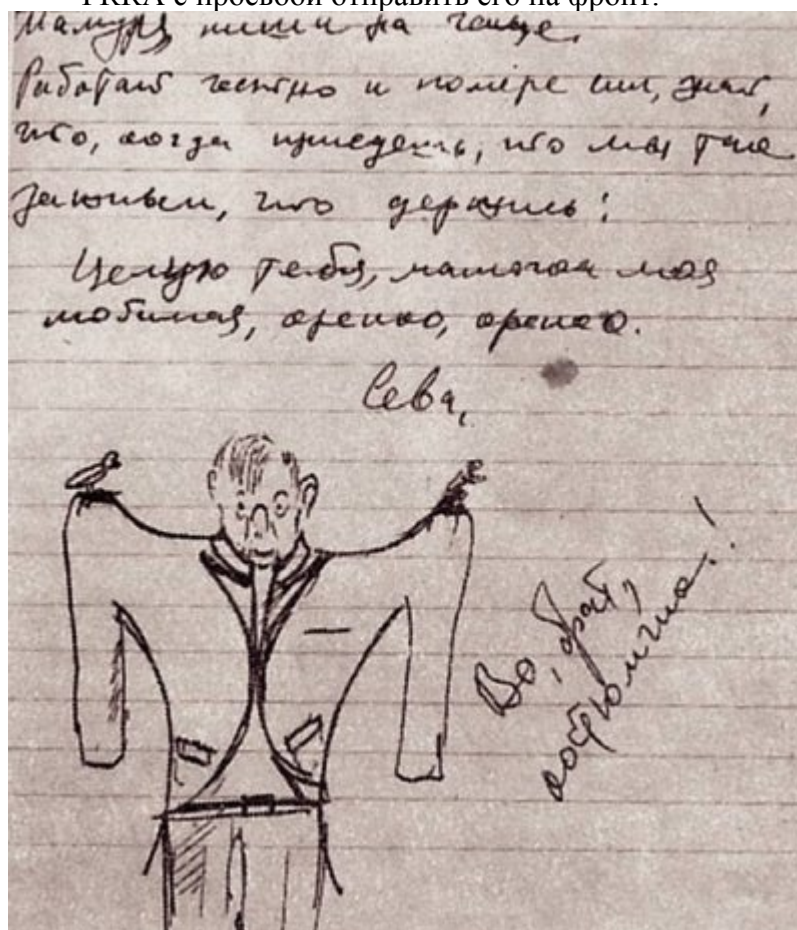 РККА с просьбой отправить его на фронт.
Мамуля, пиши на чаще.
Работай честно и по мере сил, знай,
что, когда приедешь, что мы так
заживем, что держись!
Целую тебя, мамочка моя
любимая, крепко, крепко.
Сева,
Во, брат,
костюмчик!